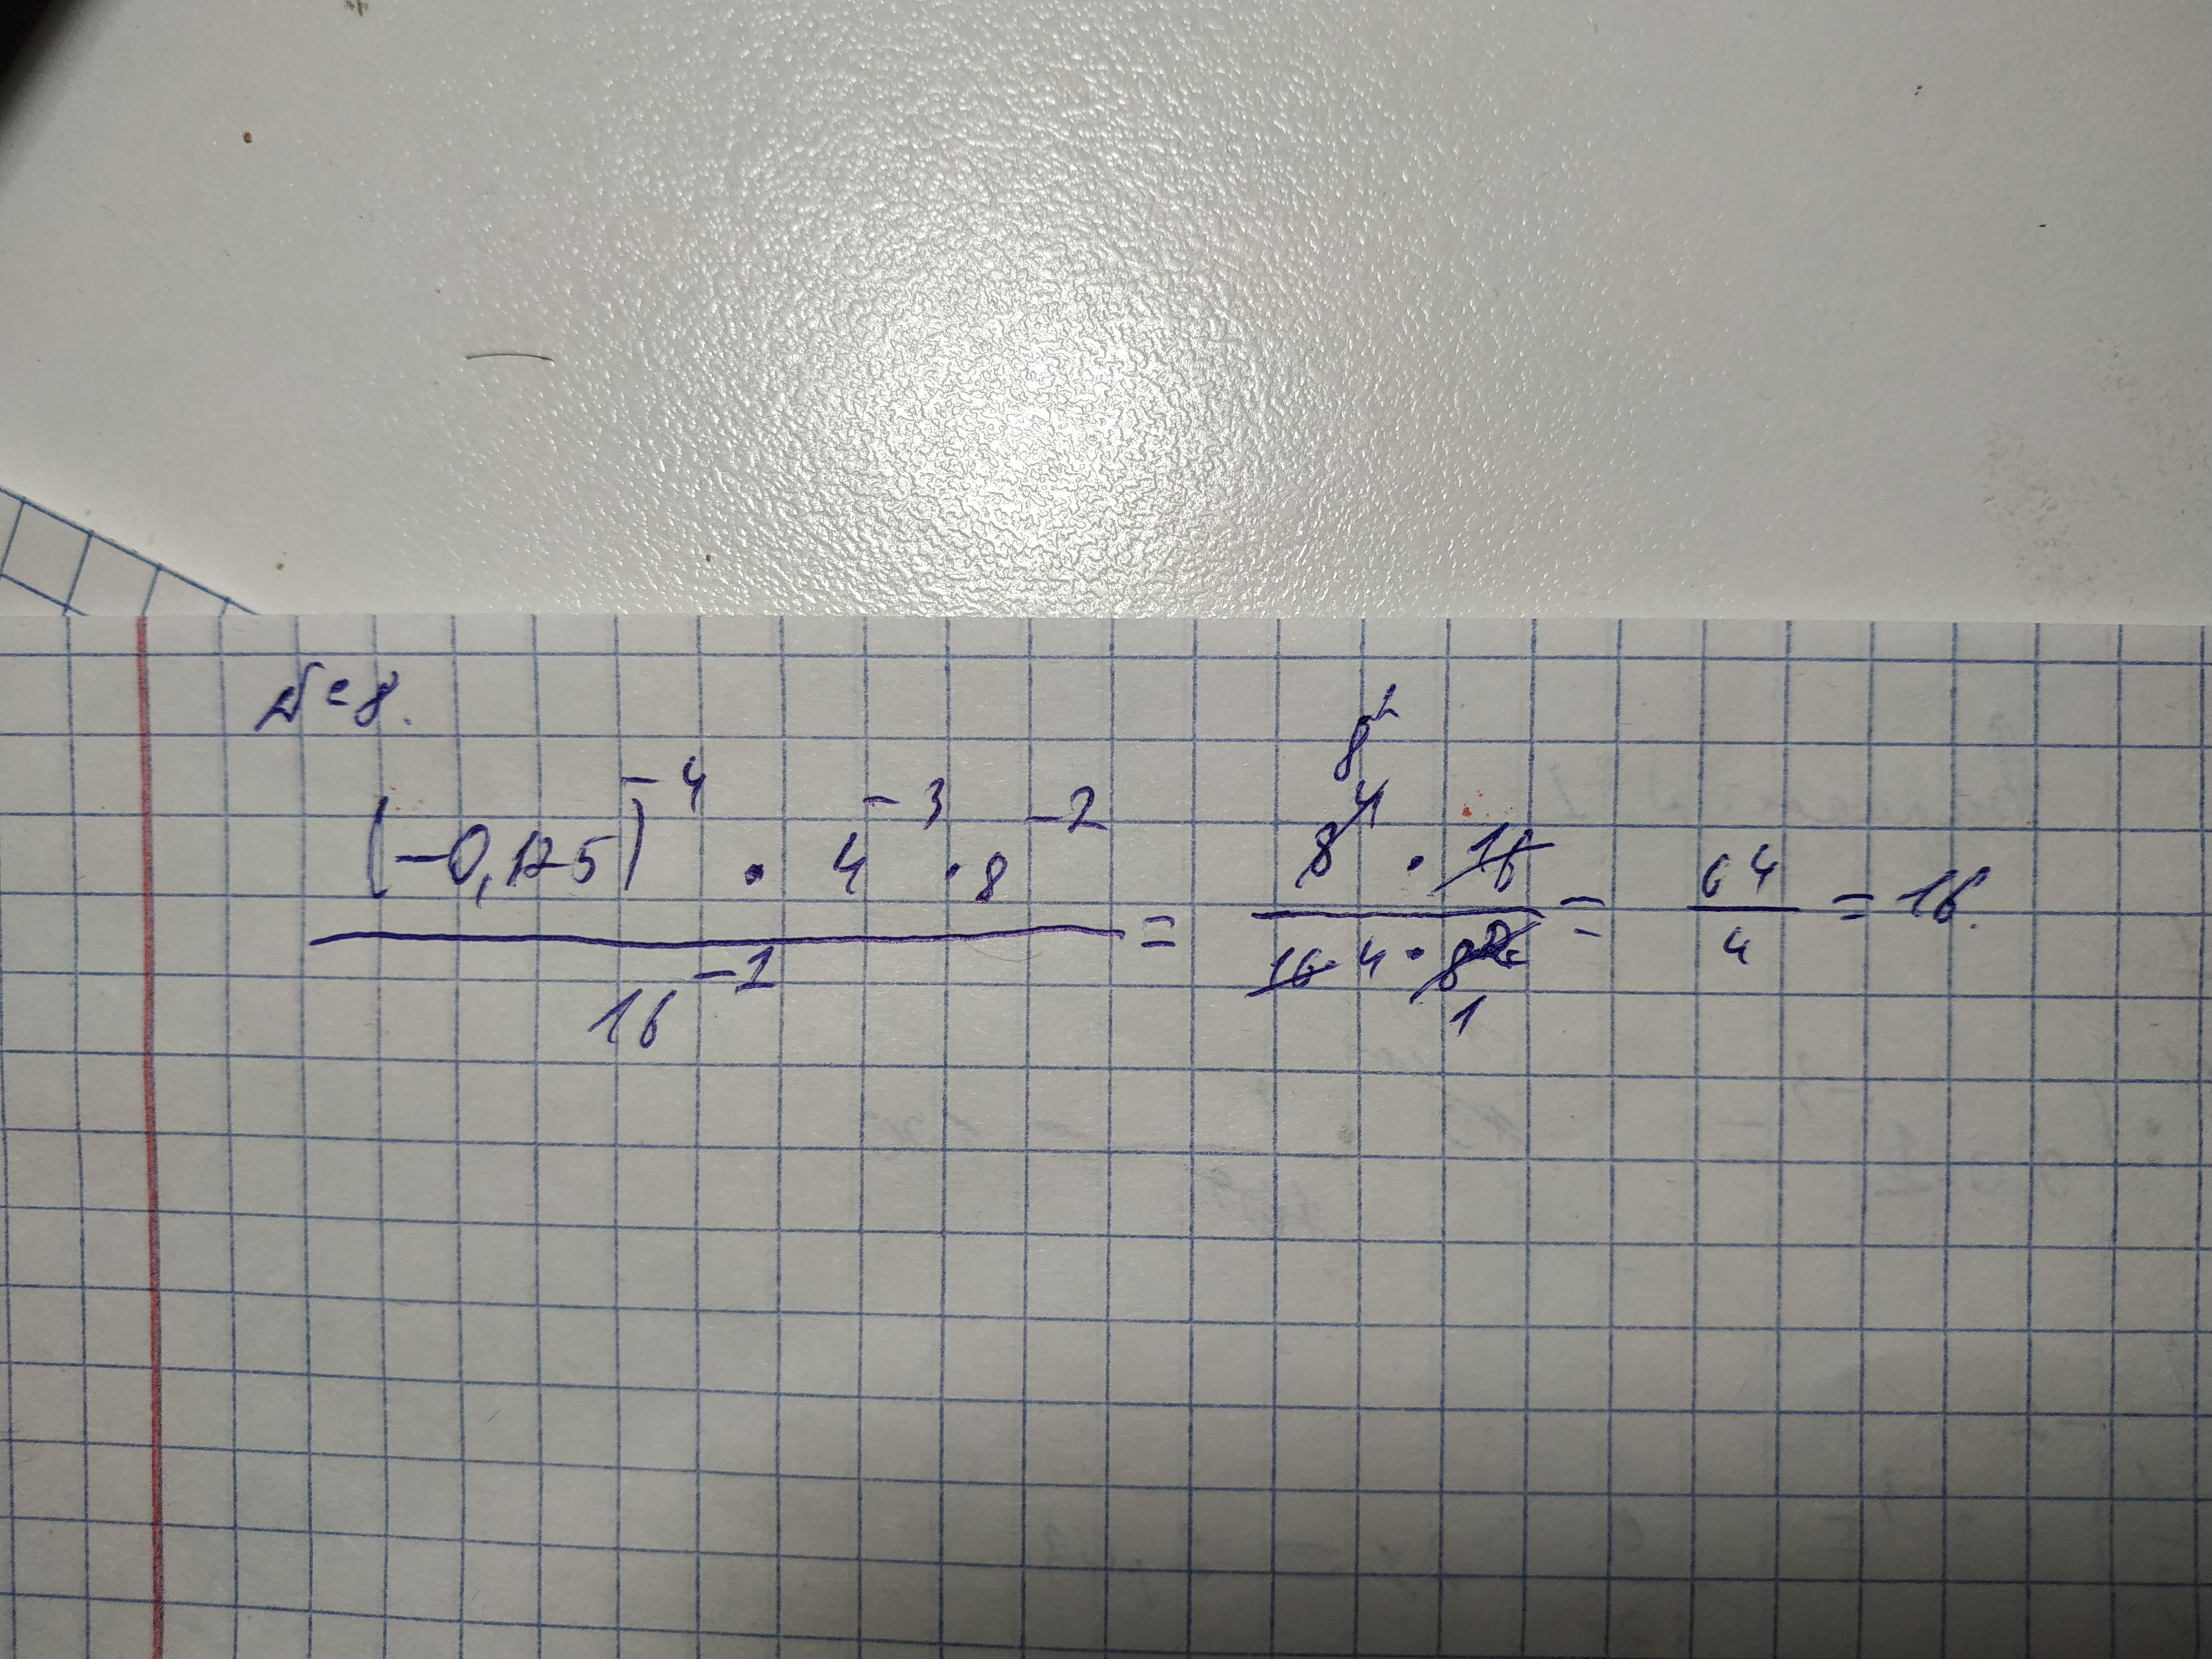 №8.
((-0,125)^-4 · 4^-3 · 8^-2) / 16^-1 = (8^4 · 16) / (16 · 4 · 8^2) = 64 / 4 = 16.
8^2
1